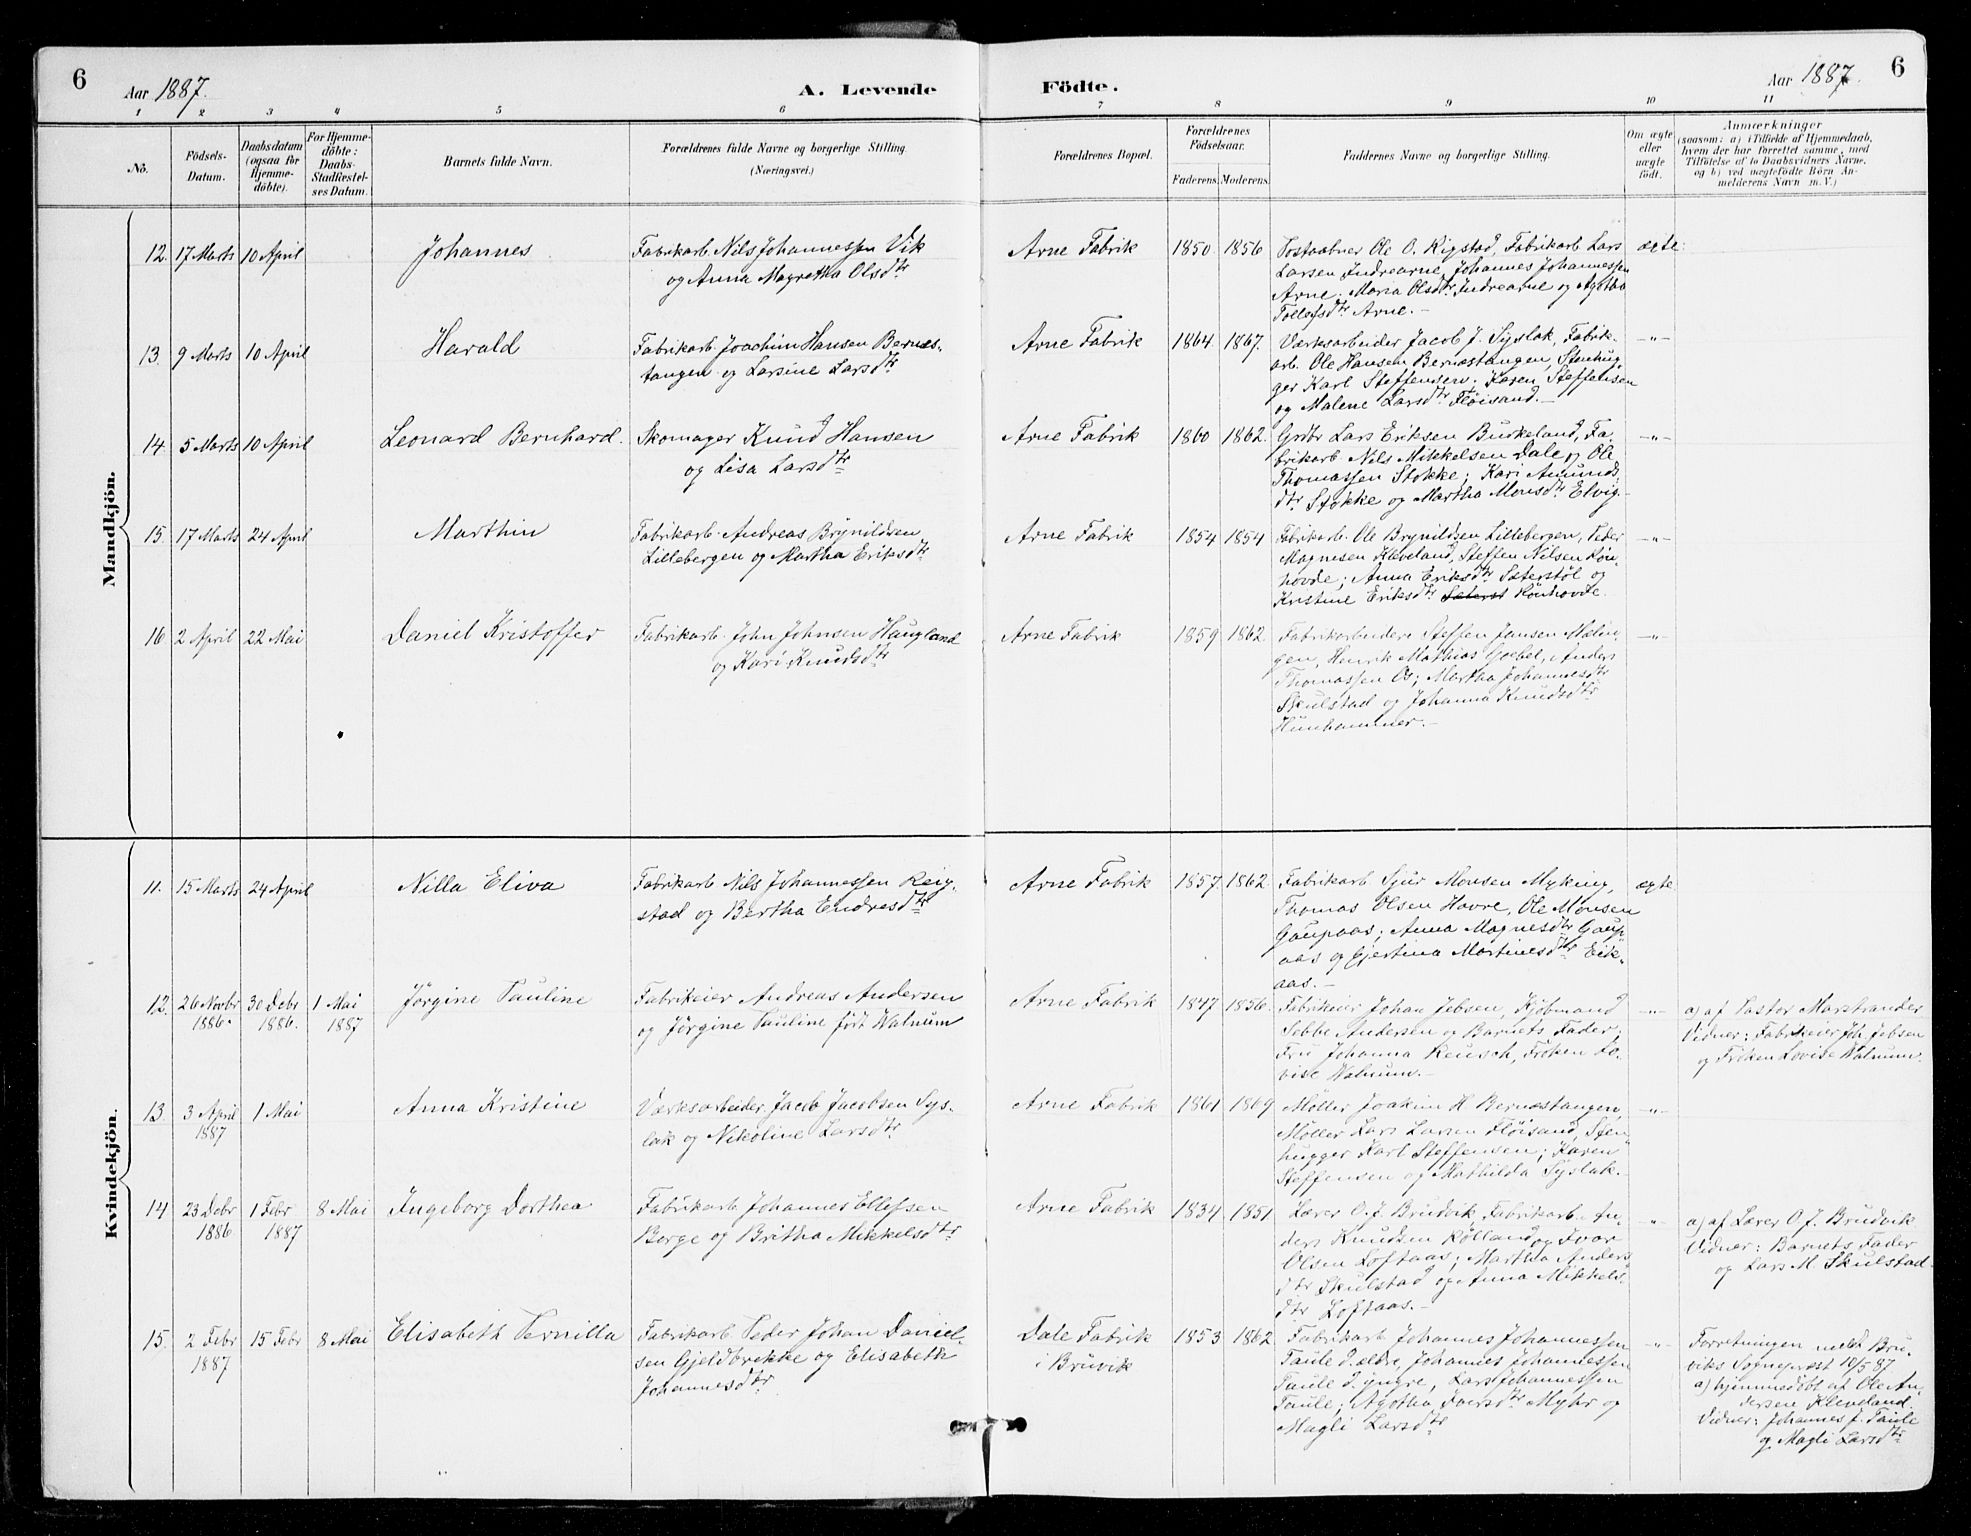 6
Aar 1887.
A. Levende
Födte.
Aar 1887.
6
1 2 3 4 5 6 7 8 9 10 11
No.
Födsels-
Datum.
Daabsdatum
(ogsaa for
Hjemme-
döbte).
For Hjemme-
döbte:
Daabs-
Stadfæstel-
ses Datum.
Barnets fulde Navn.
Forældrenes fulde Navne og borgerlige Stilling.
(Næringsvei.)
Forældrenes Bopæl.
Forældrenes
Födselsaar.
Faderens. Moderens.
Faddernes Navne og borgerlige Stilling.
Om ægte
eller
uægte
födt.
Anmærkninger
(saasom: a) i Tilfælde af Hjemmedaab,
hvem der har forrettet samme, med
Tilföielse af to Daabsvidners Navne,
og b) ved uægtefödte Börn An-
melderens Navn m. V.)
Mandkjön.
12. 17 Marts 10 April
Johannes
Fabrikarb. Nils Johannessen Vik
og Anna Magretha Olsdtr
Arne Fabrik
1850 1856
Postaabner Ole O. Rigstad, Fabrikarb Lars
Larsen Indrearne, Johannes Johannessen
Arne; Maria Olsdtr Indrearne og Agatha
Tollefsdtr Arne.-
ægte.
13. 9 Marts 10 April
Harald
Fabrikarb. Joachim Hansen Bernæs-
tangen og Larsine Larsdtr
Arne Fabrik
1864 1867.
Værksarbeider Jacob J. Syslak, Fabrik-
arb. Ole Hansen Bernæstangen, Stenhug-
ger Karl Steffensen; Karen Steffensen
og Malene Larsdtr Flöisand.-
-"-
14. 5 Marts 10 April
Leonard Bernhard.
Skomager Knud Hansen
og Lisa Larsdtr
Arne Fabrik
1860 1862.
Grdbr Lars Eriksen Burkeland, Fa-
brikarb. Nils Mikkelsen Dale og Ole
Thomassen Stokke; Kari Amunds-
dtr Stokke og Martha Monsdtr Elvig.-
-"-
15. 17 Marts 24 April
Marthin
Fabrikarb. Andreas Brynildsen
Lillebergen og Martha Eriksdtr
Arne Fabrik
1854 1854
Fabrikarb. Ole Brynildsen Lillebergen, Peder
Magnesen Kleveland, Steffen Nilsen Rön-
hovde; Anna Eriksdtr Sæterstöl og
Kristine Eriksdtr Sæterst Rönhovde.
-"-
16 2 April 22 Mai
Daniel Kristoffer
Fabrikarb. John Johnsen Haugland
og Kari Knudsdtr
Arne Fabrik
1859 1862.
Fabrikarbeidere Steffen Jansen Mælin-
gen, Henrik Mathias Goebel, Anders
Thomassen Os; Martha Johannesdtr
Skulstad og Johanna Knudsdtr
Hunhammer.-
-"-
Kvindekjön.
11. 15 Marts 24 April
Nilla Eliva
Fabrikarb Nils Johannessen Reig-
stad og Bertha Endresdtr
Arne Fabrik
1857. 1862.
Fabrikarb Sjur Monsen Myking,
Thomas Olsen Havre, Ole Monsen
Gaupaas; Anna Magnesdtr Gaup-
aas og Gjertina Martinesdtr Eik-
aas.-
ægte
12. 26 Novbr
1886.
30 Debr
1886.
1 Mai
1887
Jörgine Pauline
Fabrikeier Andreas Andersen
og Jörgine Pauline födt Walnum
Arne Fabrik
1847 1856.
Fabrikeier Johan Jebsen, Kjöbmand
Sebbe Andersen og Barnets Fader;
Fru Johanna Reusch, Fröken Lo-
vise Walnum.-
-"-
a) af Pastor Marstrander
Vidner: Fabrikeier Joh. Jebsen
og Fröken Lovise Walnum.
13. 3 April
1887
1 Mai
Anna Kristine
Værksarbeider Jacob Jacobsen Sys-
lak og Nikoline Larsdtr
Arne Fabrik
1861 1869
Möller Joakim H Bernæstangen,
Möller Lars Larsen Flöisand, Sten-
hugger Karl Steffensen; Karen
Steffensen og Mathilda Syslak.-
-"-
14 23 Debr
1886
1 Febr
1887
8 Mai
Ingeborg Dorthea
Fabrikarb Johannes Ellefsen
Borge og Britha Mikkelsdtr
Arne Fabrik
1834 1851
Lærer O. J. Brudvik, Fabrikarb. An-
ders Knudsen Rölland og Ivar
Olsen Loftaas; Martha Anders-
dtr Skulstad og Anna Mikkels-
dtr Loftaas.-
-"-
a) af Lærer O. J. Brudvik
Vidner: Barnets Fader
og Lars M. Skulstad.
15. 2 Febr
1887
15 Febr 8 Mai
Elisabeth Pernilla
Fabrikarb Peder Johan Daniel-
sen Gjeldbrekke og Elisabeth
Johannesdtr
Dale Fabrik
i Bruvik
1853 1862
Fabrikarb Johannes Johannessen
Taule d. ældre, Johannes Johannessen
Taule d. yngre, Lars Johannessen
Taule; Agatha Iversdtr Myhr og
Magli Larsdtr
-"-
Forretningen meldt Bru-
viks Sogneprest 10/5 87
a) hjemmedöbt af Ole An-
dersen Kleveland.
Vidner: Johannes J. Taule
og Magli Larsdtr